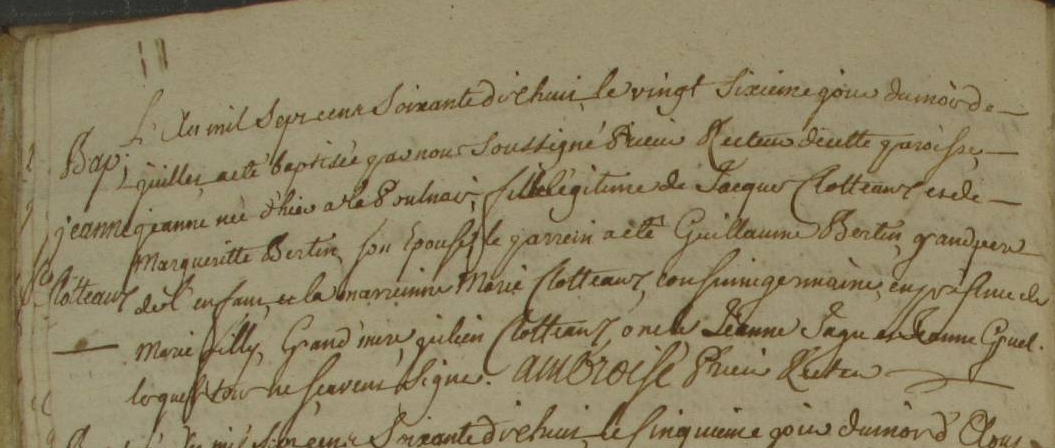 L'An mil sept cent soixante dix huit le vingt sixieme jour du mois de
Bap; juillet a eté baptisée par nous soussigné Prieur Recteur de cette paroisse
jeanne jeanne née d'hier a la fille legitime de Jacques Clotteaux et de
Margueritte Bertin son Epouse, le parrein a eté Guillaume Bertin, grand pere
Clotteaux de l'enfant, et la marreinne Marie Clotteaux cousinne germaine, en presence de
Marie Grand'mere, julien Clotteaux oncle Jeanne et Jeanne
lesquels tous ne scavent signe. ambroise Prieur Recteur
L'An mil sept cent soixante dix huit le cinquieme jour du mois d'